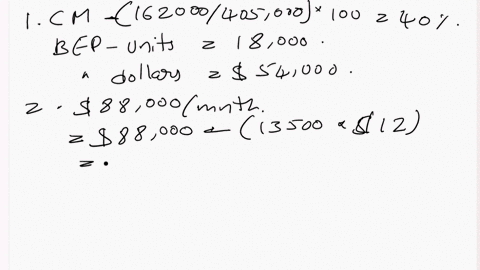 1. CM - (162000/405,000) * 100 = 40%.
BEP-units = 18,000.
" dollars = $54,000.
2. $88,000/mnth.
= $88,000 - (13500 * $12)
= .